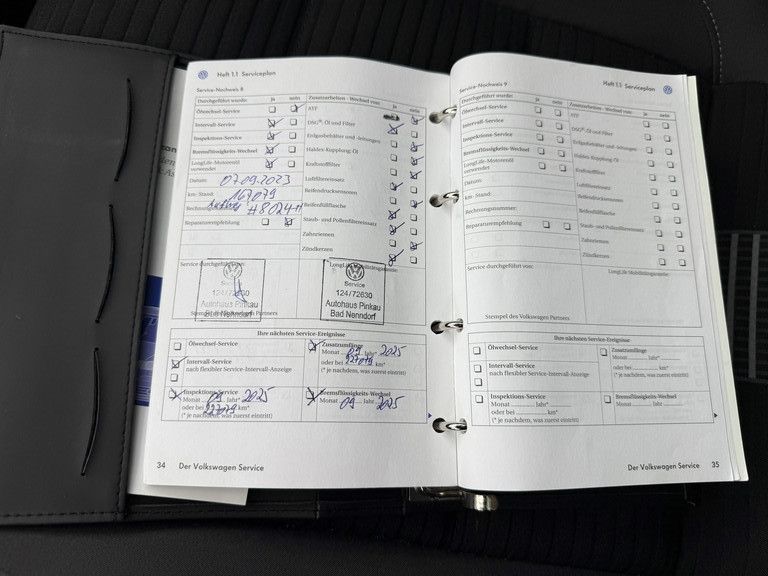 Heft 1.1 Serviceplan
Service-Nachweis 8
Durchgeführt wurde: ja nein
Ölwechsel-Service
Intervall-Service
Inspektions-Service
Bremsflüssigkeits-Wechsel
LongLife-Motorenöl
verwendet
Datum: 07.09.2023
km-Stand: 167079
Reparaturempfehlung
Zusatzarbeiten - Wechsel von: ja nein
ATF
DSG®-Öl und Filter
Erdgasbehälter und -leitungen
Haldex-Kupplung-Öl
Kraftstofffilter
Luftfiltereinsatz
Reifendrucksensoren
Reifenfüllflasche
Staub- und Pollenfiltereinsatz
Zahnriemen
Zündkerzen
Service durchgeführt
Service
124/72630
Autohaus Pinkau
Bad Nenndorf
LongLife Mobilitätsgarantie:
Service
124/72630
Autohaus Pinkau
Bad Nenndorf
Ihre nächsten Service-Ereignisse
Ölwechsel-Service
Intervall-Service
nach flexibler Service-Intervall-Anzeige
Inspektions-Service
Monat 09 Jahr* 2025
oder bei 227079 km*
(* je nachdem, was zuerst eintritt)
Zusatzumfänge
Monat 09 Jahr* 2025
oder bei 227079 km*
(* je nachdem, was zuerst eintritt)
Bremsflüssigkeits-Wechsel
Monat 09 Jahr 2025
34 Der Volkswagen Service
Heft 1.1 Serviceplan
Service-Nachweis 9
Durchgeführt wurde: ja nein
Ölwechsel-Service
Intervall-Service
Inspektions-Service
Bremsflüssigkeits-Wechsel
LongLife-Motorenöl
verwendet
Datum:
km-Stand:
Rechnungsnummer:
Reparaturempfehlung
Zusatzarbeiten - Wechsel von: ja nein
ATF
DSG®-Öl und Filter
Erdgasbehälter und -leitungen
Haldex-Kupplung-Öl
Kraftstofffilter
Luftfiltereinsatz
Reifendrucksensoren
Reifenfüllflasche
Staub- und Pollenfiltereinsatz
Zahnriemen
Zündkerzen
Service durchgeführt von:
LongLife Mobilitätsgarantie:
Stempel des Volkswagen Partners
Ihre nächsten Service-Ereignisse
Ölwechsel-Service
Intervall-Service
nach flexibler Service-Intervall-Anzeige
Inspektions-Service
Monat Jahr*
oder bei km*
(* je nachdem, was zuerst eintritt)
Zusatzumfänge
Monat Jahr*
oder bei km*
(* je nachdem, was zuerst eintritt)
Bremsflüssigkeits-Wechsel
Monat Jahr
Der Volkswagen Service 35